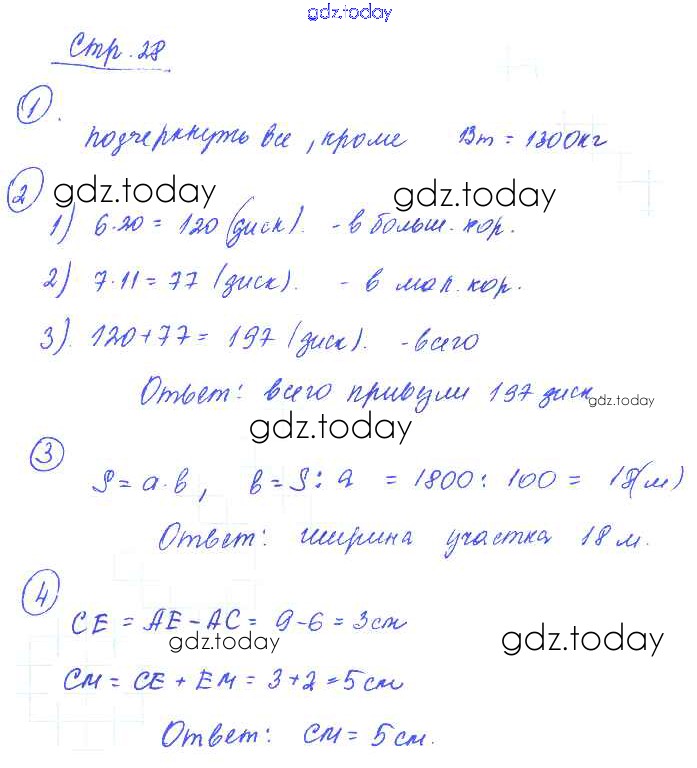 gdz.today
Стр. 28
1.
подчеркнуть все, кроме 13т = 1300кг
2
gdz.today gdz.today
1) 6·20 = 120 (диск). - в больш. кор.
2) 7·11 = 77 (диск). - в мал. кор.
3). 120+77 = 197 (диск). - всего
Ответ: всего привезли 197 диск
gdz.today
gdz.today
3
S = a·b, b = S : a = 1800 : 100 = 18(м)
Ответ: ширина участка 18 м.
4
CE = AE - AC = 9-6 = 3см
gdz.today gdz.today
CM = CE + EM = 3+2 = 5 см
Ответ: CM = 5 см.